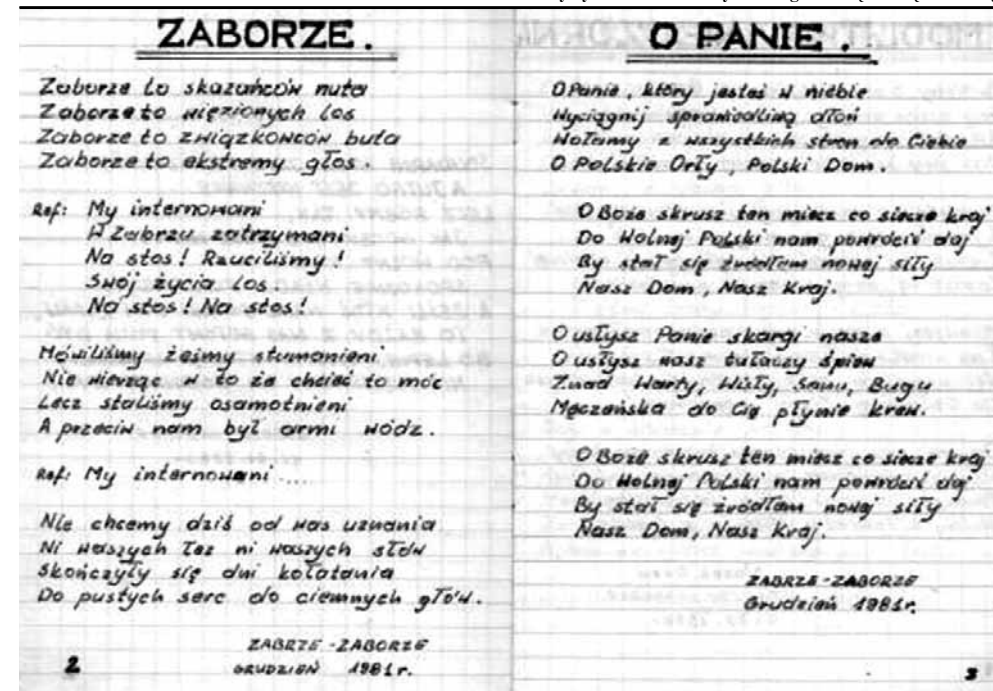 ZABORZE.
Zaborze to skazańców nuta
Zaborze to więzionych los
Zaborze to związkowców buta
Zaborze to ekstremy głos.
Ref: My internowani
W Zabrzu zatrzymani
Na stos! Rzuciliśmy!
Swój życia los.
Na stos! Na stos!
Mówiliśmy żeśmy stumanieni
Nie wierząc w to że chcieć to móc
Lecz staliśmy osamotnieni
A przeciw nam był armi wódz.
Ref: My internowani .....
Nie chcemy dziś od was uznania
Ni waszych łez ni waszych słów
Skończyły się dni kołatania
Do pustych serc do ciemnych głów.
ZABRZE-ZABORZE
GRUDZIEŃ 1981r.
2
O PANIE.
O Panie, który jesteś w niebie
Wyciągnij sprawiedliwą dłoń
Wołamy z wszystkich stron do Ciebie
O Polskie Orły, Polski Dom.
O Boże skrusz ten miecz co siecze kraj
Do Wolnej Polski nam powrócić daj
By stał się źródłem nowej siły
Nasz Dom, Nasz Kraj.
O usłysz Panie skargi nasze
O usłysz nasz tułaczy śpiew
Znad Warty, Wisły, Sanu, Bugu
Męczeńska do Cię płynie krew.
O Boże skrusz ten miecz co siecze kraj
Do Wolnej Polski nam powrócić daj
By stał się źródłem nowej siły
Nasz Dom, Nasz Kraj.
ZABRZE-ZABORZE
Grudzień 1981r.
3